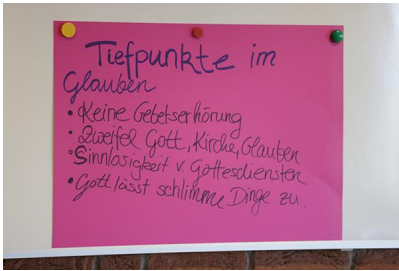 Tiefpunkte im
Glauben
• Keine Gebetserhörung
• Zweifel Gott, Kirche, Glauben
• Sinnlosigkeit v. Gottesdiensten
• Gott lässt schlimme Dinge zu.